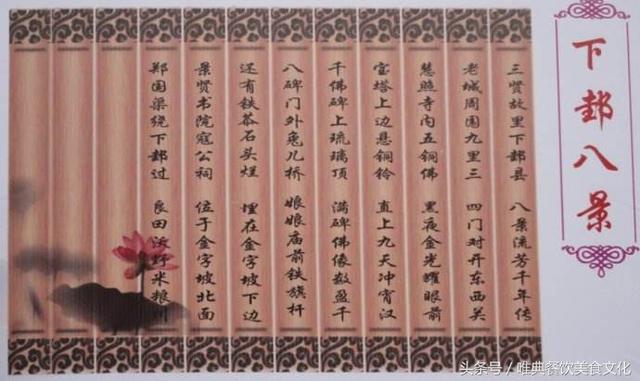 下邽八景
三贤故里下邽县 八景流芳千年传
老城周围九里三 四门对开东西关
慧照寺内五铜佛 黑夜金光耀眼前
宝塔上边悬铜铃 直上九天冲宵汉
千佛碑上琉璃顶 满碑佛像数盈千
八碑门外兔儿桥 娘娘庙前铁旗杆
还有铁石头 埋在金字坡下边
景贤书院寇公祠 位于金字坡北面
郑国渠绕下邽过 良田沃野米粮川
头条号 / 唯典餐饮美食文化